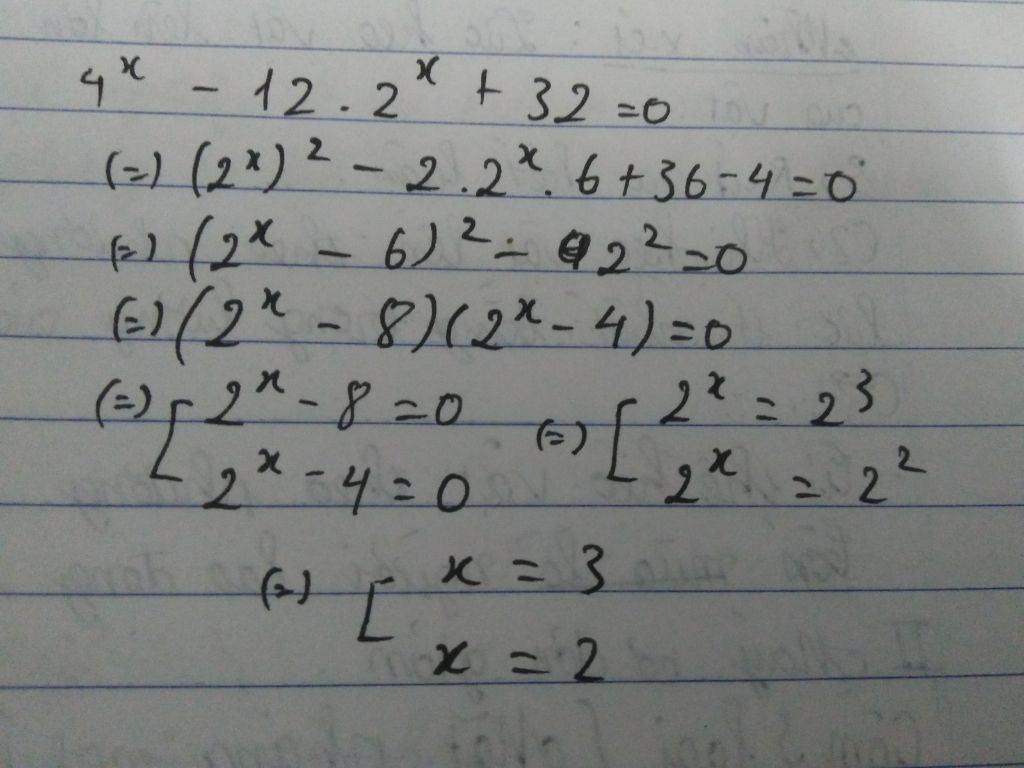 4^x - 12 . 2^x + 32 = 0
(=) (2^x)^2 - 2 . 2^x . 6 + 36 - 4 = 0
(=) (2^x - 6)^2 - 2^2 = 0
(=) (2^x - 8)(2^x - 4) = 0
(=) [ 2^x - 8 = 0 (=) [ 2^x = 2^3
2^x - 4 = 0 2^x = 2^2
(=) [ x = 3
x = 2